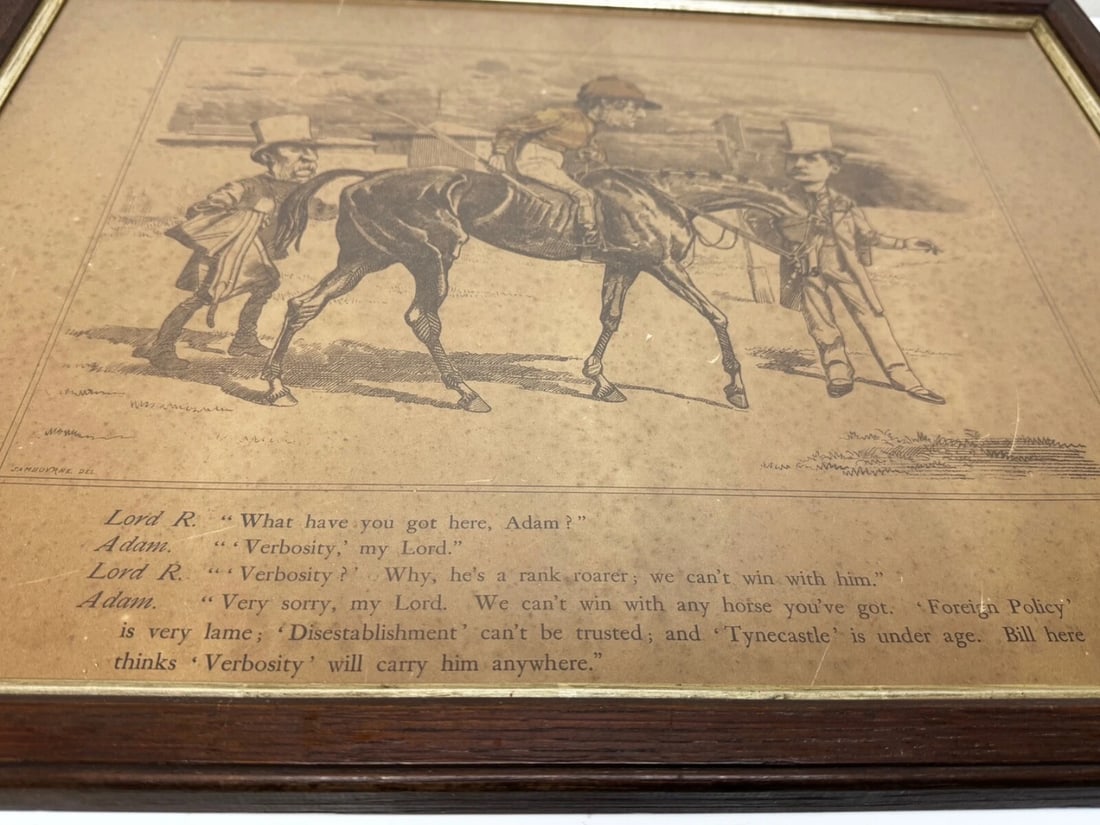 SAMBOURNE DEL.
Lord R. "What have you got here, Adam?"
Adam. "'Verbosity,' my Lord."
Lord R. "'Verbosity?' Why, he's a rank roarer; we can't win with him."
Adam. "Very sorry, my Lord. We can't win with any horse you've got. 'Foreign Policy'
is very lame; 'Disestablishment' can't be trusted; and 'Tynecastle' is under age. Bill here
thinks 'Verbosity' will carry him anywhere."